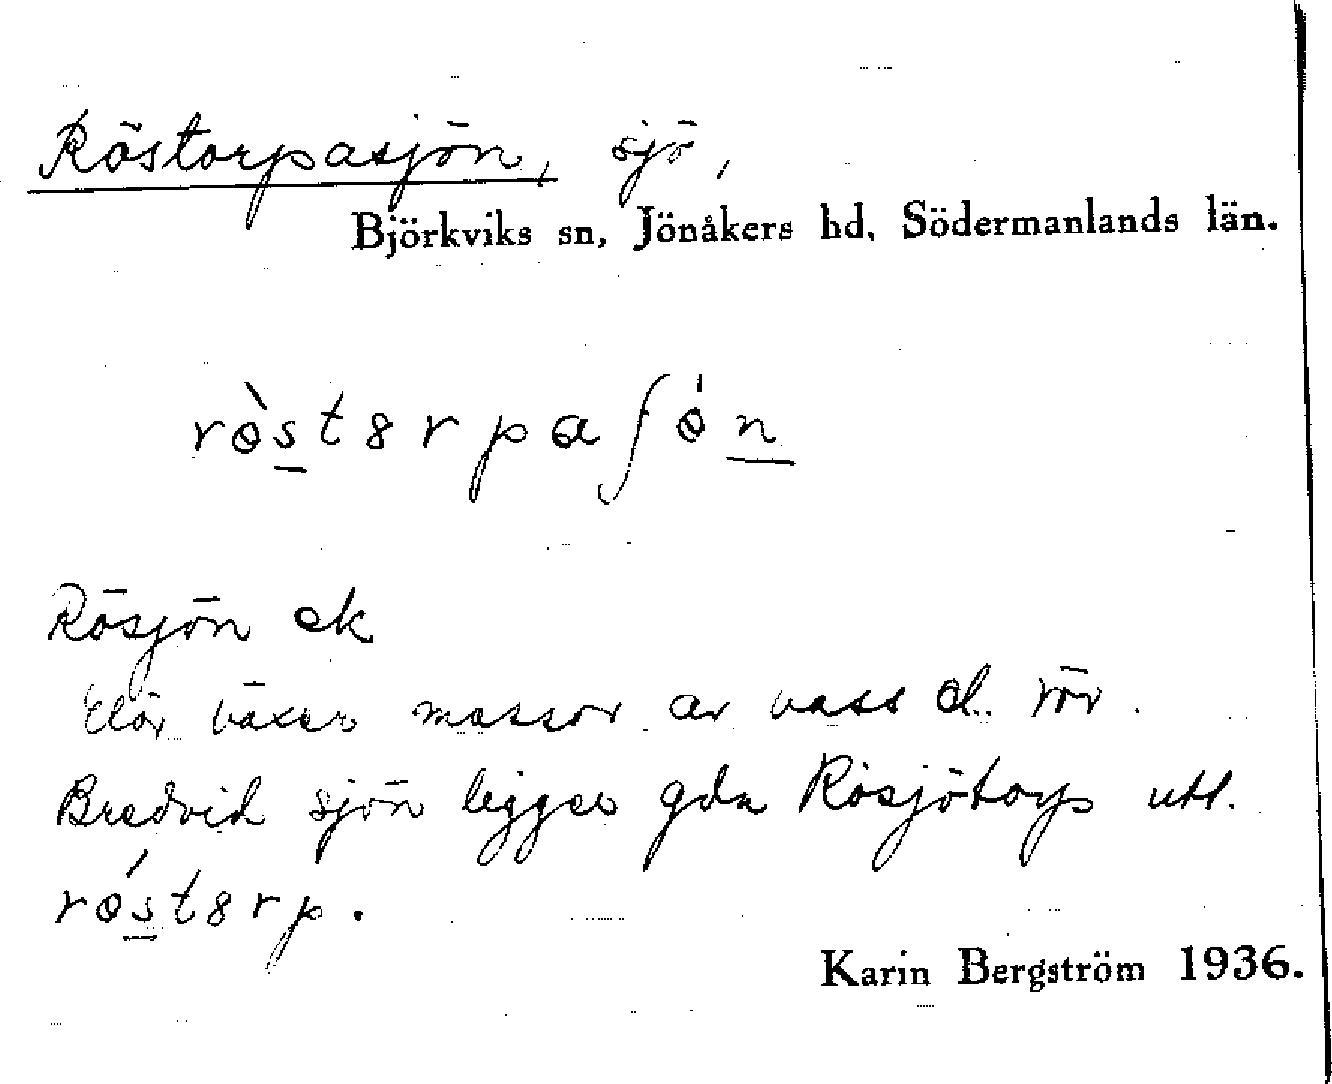 Röstorpasjön, sjö,
Björkviks sn, Jönåkers hd, Södermanlands län.
rø̀st8rpaʃǿn
Rösjön ek
Där växer massor av vass ol. rör.
Bredvid sjön ligger gdn Rösjötorp utt.
rǿst8rp.
Karin Bergström 1936.